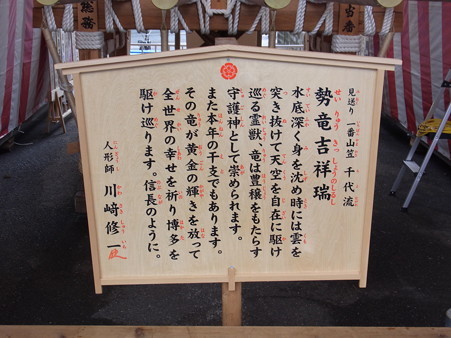 総務
当番
見送り 一番山笠 千代流
勢竜吉祥瑞
せい りゅう きっ しょうのしるし
水底深く身を沈め時には雲を
突き抜けて天空を自在に駆け
巡る霊獣、竜は豊穣をもたらす
守護神として崇められます。
また本年の干支でもあります。
その竜が黄金の輝きを放って
全世界の幸せを祈り博多を
駆け巡ります。信長のように。
人形師 川﨑修一